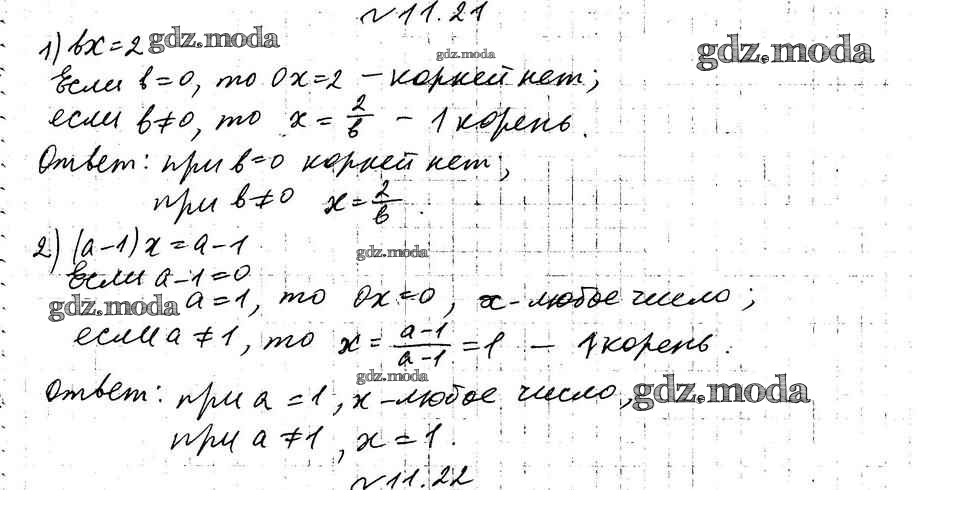 №11.21
1) bx=2 gdz.moda
gdz.moda
gdz.moda
Если b=0, то 0x=2 – корней нет;
если b≠0, то x = 2/b – 1 корень.
Ответ: при b=0 корней нет;
при b≠0 x=2/b.
2) (a-1)x=a-1
gdz.moda
Если a-1=0
gdz.moda a=1, то 0x=0, x-любое число;
если a≠1, то x = a-1/a-1 = 1 – 1 корень.
gdz.moda
Ответ: при a=1, x-любое число, gdz.moda
при a≠1, x=1.
№11.22